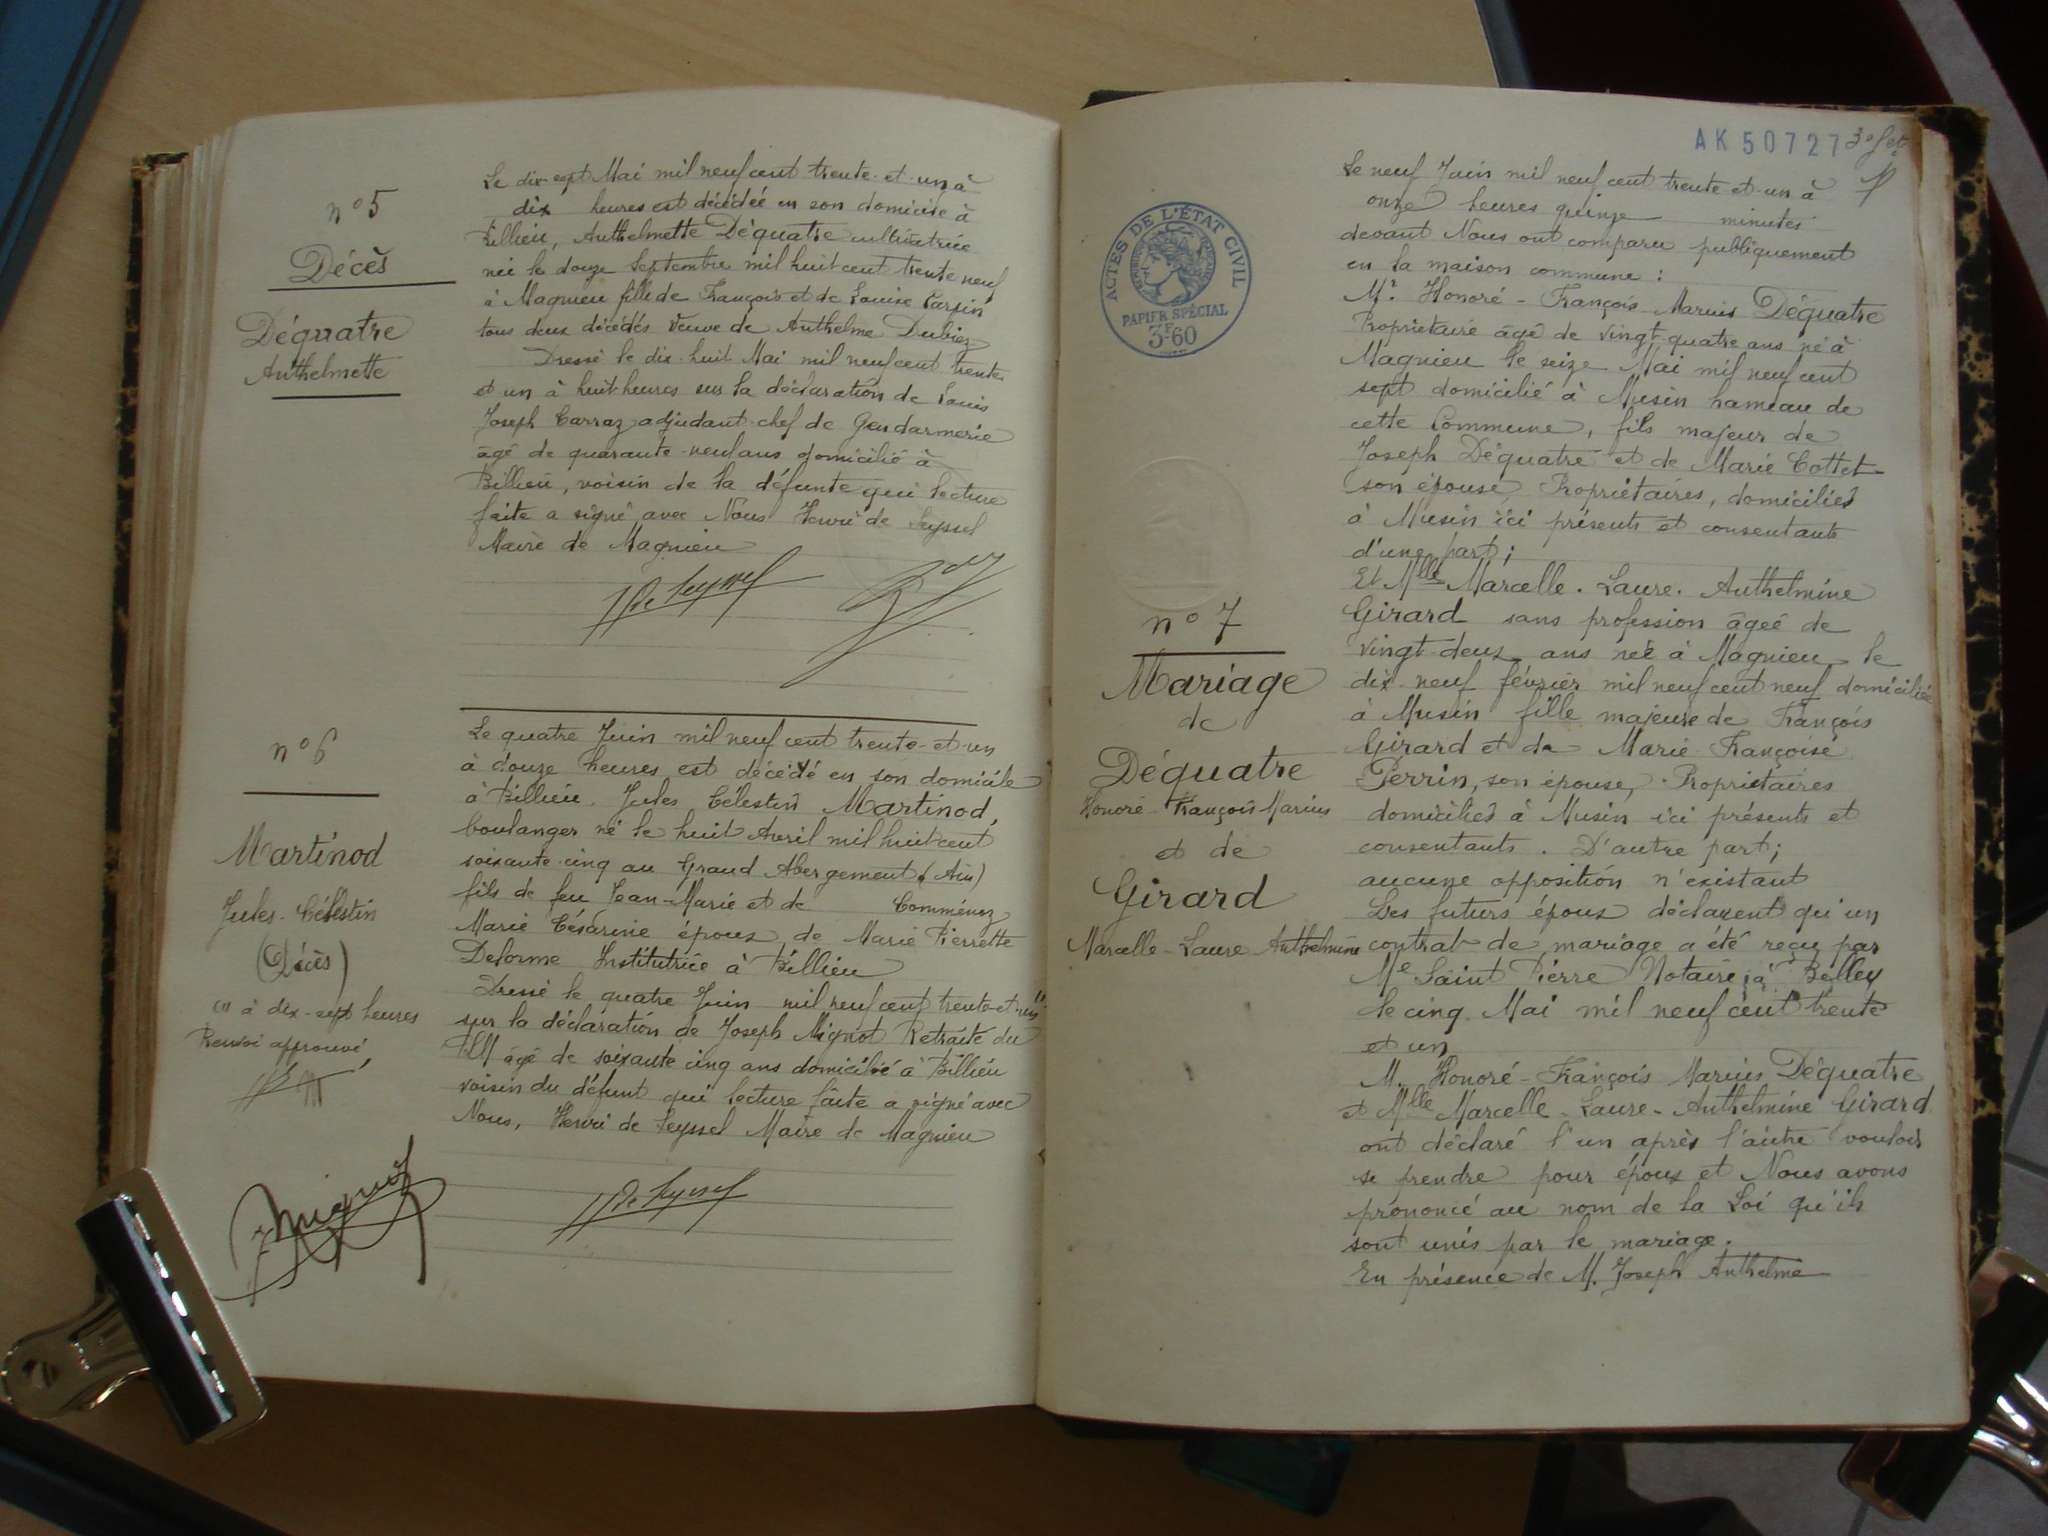 n° 5
Décès
Déquatre
Anthelmette
Le dix-sept Mai mil neuf cent trente-et-un à
dix heures est décédée en son domicile à
Billieu, Anthelmette Déquatre cultivatrice
née le douze Septembre mil huit cent trente neuf
à Magnieu fille de François et de Louise
tous deux décédés Veuve de Anthelme Dubiez
Dressé le dix-huit Mai mil neuf cent trente
et un à huit heures sur la déclaration de Louis
Joseph Carraz adjudant-chef de Gendarmerie
âgé de quarante-neuf ans domicilié à
Billieu, voisin de la défunte qui lecture
faite a signé avec Nous Henri de Seyssel
Maire de Magnieu
H de Seyssel
n° 6
Martinod
Jules-Célestin
(Décès)
(1) à dix-sept heures
Renvoi approuvé
Le quatre Juin mil neuf cent trente-et-un
à douze heures est décédé en son domicile
à Billieu Jules Célestin Martinod,
boulanger né le huit Avril mil huit cent
soixante-cinq au Grand Abergement (Ain)
fils de feu Jean-Marie et de Comménoz
Marie Césarine époux de Marie Pierrette
Delorme Institutrice à Billieu
Dressé le quatre Juin mil neuf cent trente-et-un (1)
sur la déclaration de Joseph Mignot Retraité du
PLM âgé de soixante cinq ans domicilié à Billieu
voisin du défunt qui lecture faite a signé avec
Nous, Henri de Seyssel Maire de Magnieu
Mignot
H de Seyssel
AK 50727
ACTES DE L'ÉTAT CIVIL
PAPIER SPÉCIAL
3F60
n° 7
Mariage
de
Déquatre
Honoré-François Marius
et de
Girard
Marcelle-Laure Anthelmine
Le neuf Juin mil neuf cent trente-et-un à
onze heures quinze minutes
devant Nous ont comparu publiquement
en la maison commune :
Mr. Honoré-François-Marius Déquatre
Propriétaire âgé de vingt-quatre ans né à
Magnieu le seize Mai mil neuf cent
sept domicilié à Musin hameau de
cette Commune, fils majeur de
Joseph Déquatre et de Marie Cottet
son épouse, Propriétaires, domiciliés
à Musin ici présents et consentants
d'une part ;
Et Mlle Marcelle. Laure. Anthelmine
Girard sans profession âgée de
vingt-deux ans née à Magnieu le
dix-neuf février mil neuf cent neuf domiciliée
à Musin fille majeure de François
Girard et de Marie Françoise
Perrin, son épouse, Propriétaires
domiciliés à Musin ici présents et
consentants. D'autre part ;
aucune opposition n'existant
Les futurs époux déclarent qu'un
contrat de mariage a été reçu par
Me Saint Pierre Notaire à Belley
le cinq Mai mil neuf cent trente
et un
M. Honoré-François Marius Déquatre
et Mlle Marcelle-Laure-Anthelmine Girard
ont déclaré l'un après l'autre vouloir
se prendre pour époux et Nous avons
prononcé au nom de la Loi qu'ils
sont unis par le mariage.
En présence de M. Joseph Anthelme